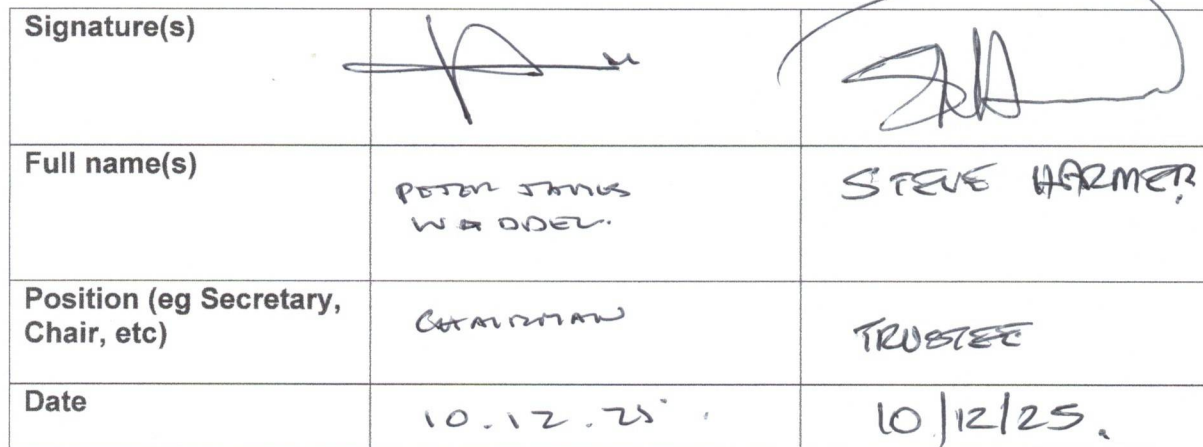 Signature(s)
Full name(s)
PETER JAMES
WADDEL.
STEVE HARMER
Position (eg Secretary,
Chair, etc)
CHAIRMAN
TRUSTEE
Date
10.12.25.
10/12/25.